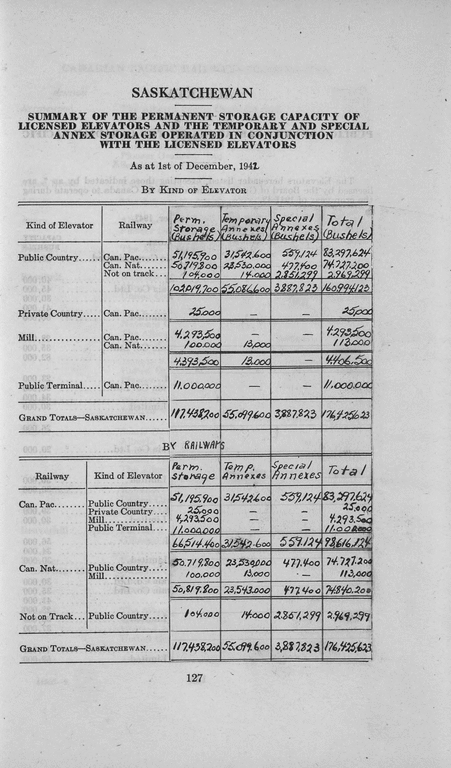 SASKATCHEWAN
SUMMARY OF THE PERMANENT STORAGE CAPACITY OF
LICENSED ELEVATORS AND THE TEMPORARY AND SPECIAL
ANNEX STORAGE OPERATED IN CONJUNCTION
WITH THE LICENSED ELEVATORS
As at 1st of December, 1942
BY KIND OF ELEVATOR
Kind of Elevator Railway Perm. Storage (Bushels) Temporary Annexes (Bushels) Special Annexes (Bushels) Total (Bushels)
Public Country..... Can. Pac........ 51,195,900 31,542,600 559,124 83,297,624
Can. Nat........ 50,719,800 23,530,000 477,400 74,727,200
Not on track... 104,000 14,000 2,851,299 2,969,299
102,019,700 55,086,600 3,887,823 160,994,123
Private Country..... Can. Pac........ 25,000 — — 25,000
Mill................. Can. Pac........ 4,293,500 — — 4,293,500
Can. Nat....... 100,000 13,000 113,000
4,393,500 13,000 — 4,406,500
Public Terminal..... Can. Pac........ 11,000,000 — — 11,000,000
GRAND TOTALS—SASKATCHEWAN...... 117,438,200 55,099,600 3,887,823 176,425,623
BY RAILWAYS
Railway Kind of Elevator Perm. Storage Temp. Annexes Special Annexes Total
Can. Pac....... Public Country..... 51,195,900 31,542,600 559,124 83,297,624
Private Country.... 25,000 — — 25,000
Mill................ 4,293,500 — — 4,293,500
Public Terminal.... 11,000,000 — — 11,000,000
66,514,400 31,542,600 559,124 98,616,124
Can. Nat....... Public Country..... 50,719,800 23,530,000 477,400 74,727,200
Mill................ 100,000 13,000 — 113,000
50,819,800 23,543,000 477,400 74,840,200
Not on Track... Public Country..... 104,000 14,000 2,851,299 2,969,299
GRAND TOTALS—SASKATCHEWAN...... 117,438,200 55,099,600 3,887,823 176,425,623
127